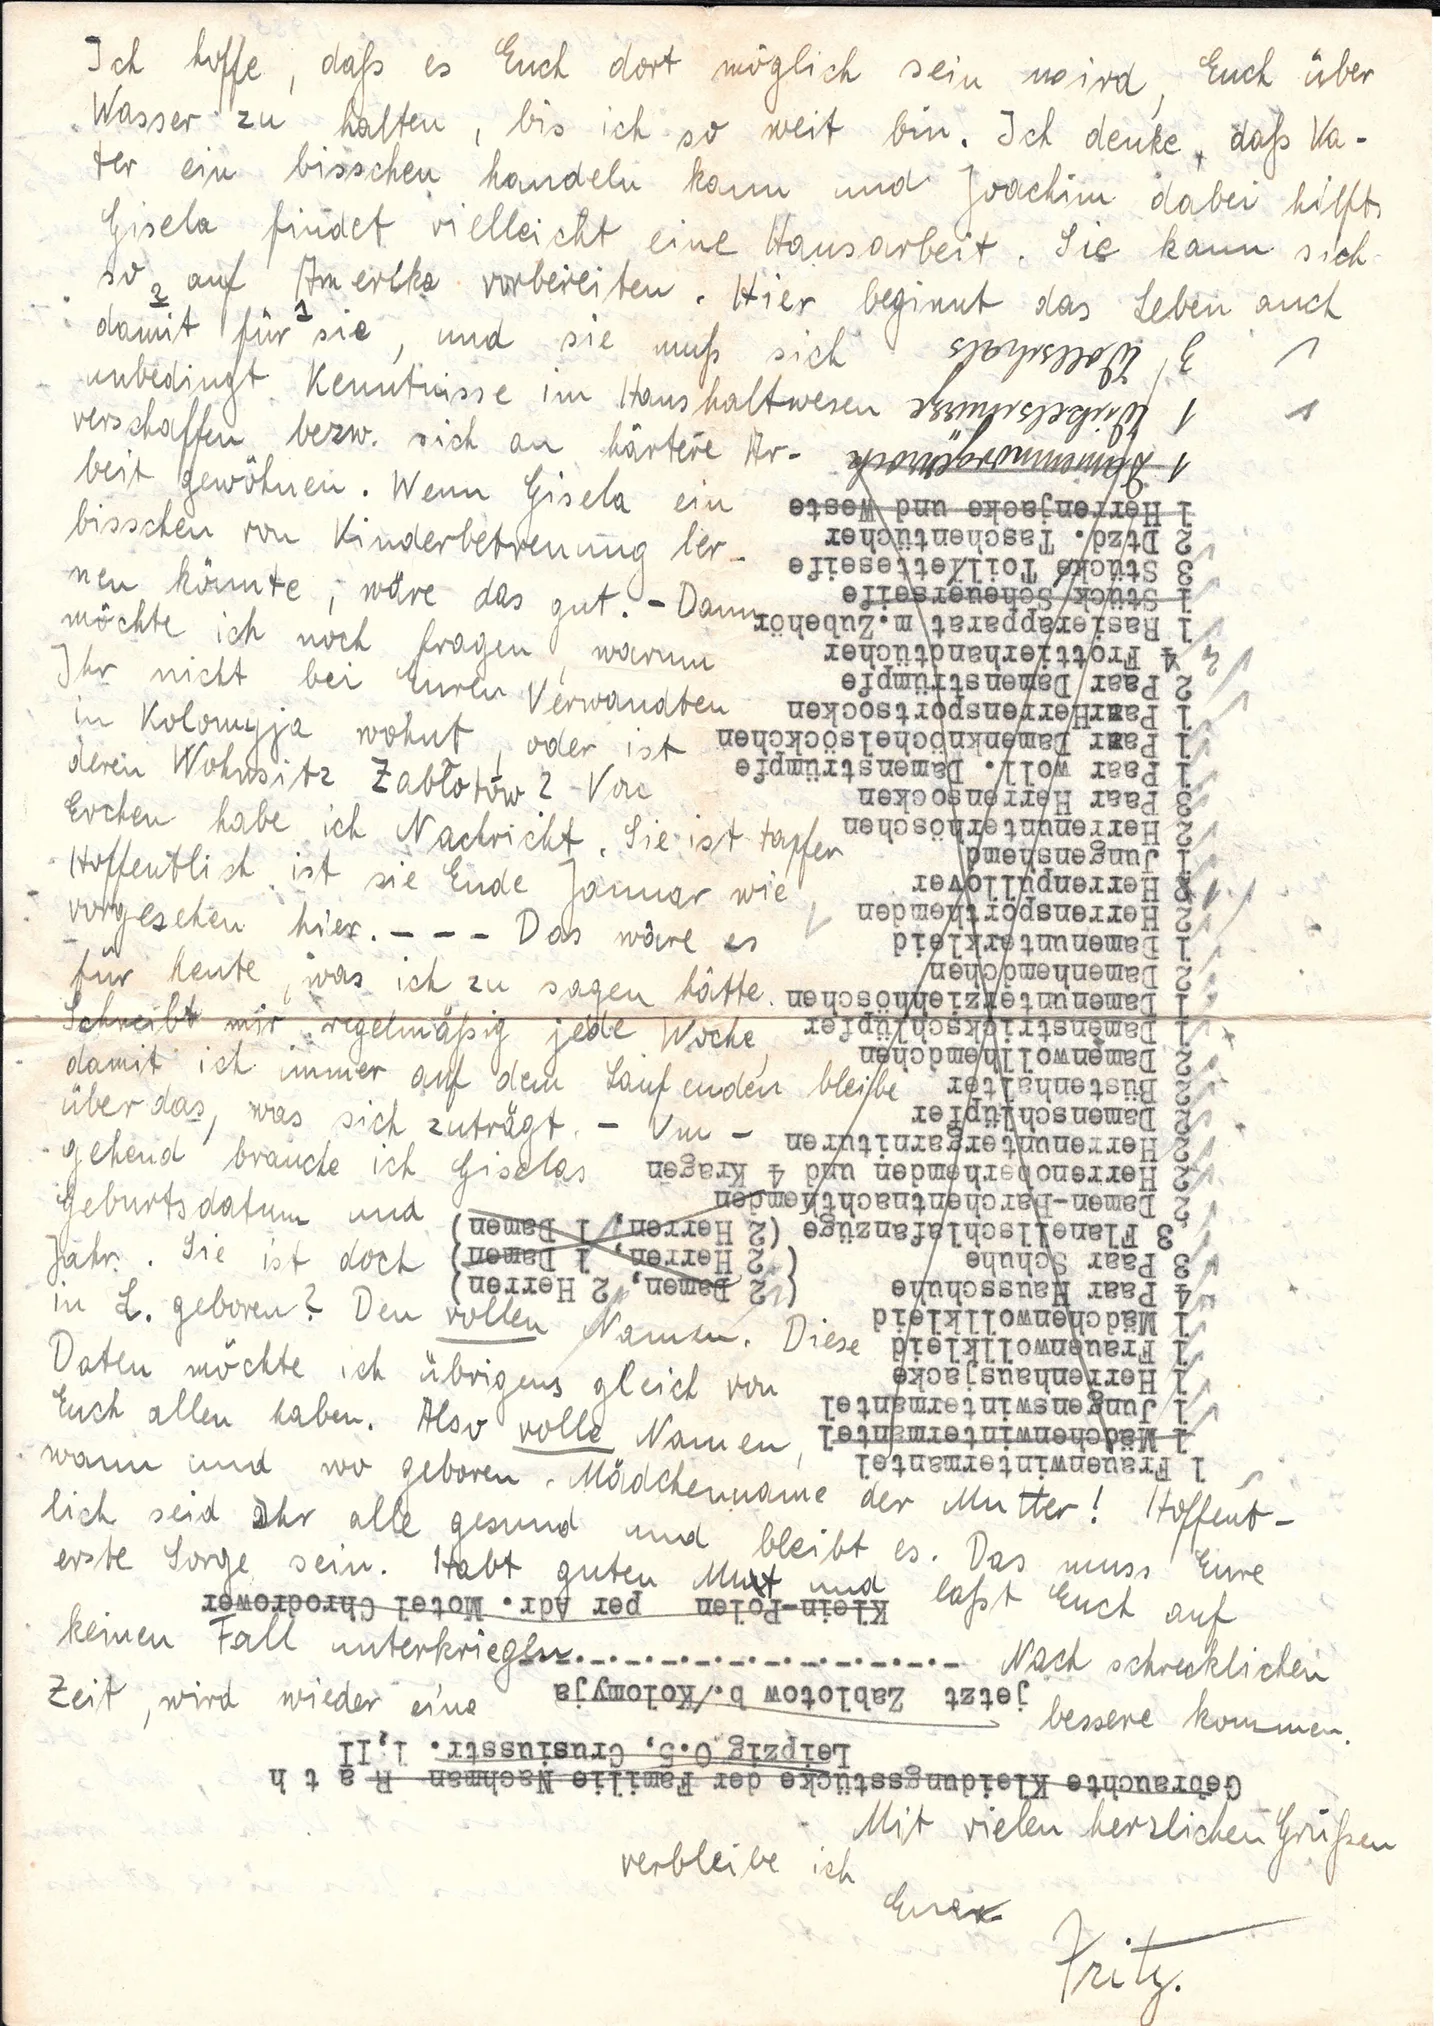 Ich hoffe, daß es Euch dort möglich sein wird, Euch über
Wasser zu halten, bis ich so weit bin. Ich denke, daß Va-
ter ein bisschen handeln kann und Joachim dabei hilft.
Gisela findet vielleicht eine Hausarbeit. Sie kann sich
so auf Amerika vorbereiten. Hier beginnt das Leben auch
damit 2 für 1 sie, und sie muß sich
unbedingt Kenntnisse im Haushaltwesen
verschaffen bezw. sich an härtere Ar-
beit gewöhnen. Wenn Gisela ein
bisschen von Kinderbetreuung ler-
nen könnte, wäre das gut. - Dann
möchte ich noch fragen, warum
Ihr nicht bei Euren Verwandten
in Kolomyja wohnt, oder ist
deren Wohnsitz Zabłotów? Von
Erchen habe ich Nachricht. Sie ist tapfer
Hoffentlich ist sie Ende Januar wie
vorgesehen hier. - - - Das wäre es
für heute, was ich zu sagen hätte.
Schreibt mir regelmäßig jede Woche,
damit ich immer auf dem Laufenden bleibe
über das, was sich zuträgt. - Um -
gehend brauche ich Giselas
Geburtsdatum und
Jahr. Sie ist doch
in L. geboren? Den vollen Namen. Diese
Daten möchte ich übrigens gleich von
Euch allen haben. Also volle Namen,
wann und wo geboren. Mädchenname der Mutter! Hoffent-
lich seid Ihr alle gesund und bleibt es. Das muss Eure
erste Sorge sein. Habt guten Mut und laßt Euch auf
keinen Fall unterkriegen. Nach schrecklichen
Zeit, wird wieder eine bessere kommen.
Mit vielen herzlichen Grüßen
verbleibe ich
Euer
Fritz.
Gebrauchte Kleidungsstücke der Familie Nachman R a t h
Leipzig O.5, Crusiusstr. 1,II
jetzt Zablotow b./Kolomyja
-.-.-.-.-.-.-.-.-.-.-.-.-.-.
Klein-Polen per Adr. Motel Chrodrower
1 Frauenwintermantel
1 Mädchenwintermantel
1 Jungenswintermantel
1 Herrenhausjacke
1 Frauenwollkleid
1 Mädchenwollkleid
4 Paar Hausschuhe (2 Damen, 2 Herren)
3 Paar Schuhe (2 Herren, 1 Damen)
3 Flanellschlafanzüge (2 Herren, 1 Damen)
2 Damen-Barchentnachthemden
2 Herrenoberhemden und 4 Kragen
2 Herrenuntergarnituren
2 Damenschlüpfer
2 Büstenhalter
2 Damenwollhemdchen
1 Damenstrickschlüpfer
1 Damenunterziehhöschen
2 Damenhemdchen
1 Damenunterkleid
2 Herrensporthemden
Herrenpullover 1
1 Jungenshemd
2 Herrenunterhöschen
3 Paar Herrensocken
1 Paar woll. Damenstrümpfe
1 Paar Damenknöchelsöckchen
1 Paar Herrensportsocken
2 Paar Damenstrümpfe
4 Frottierhandtücher
1 Rasierapparat m.Zubehör
1 Stück Scheuerseife
3 Stücke Toilletteseife
2 Dtzd. Taschentücher
1 Herrenjacke und Weste
1 Damenmorgenrock
1 Wickelschürze
3 Wollschals